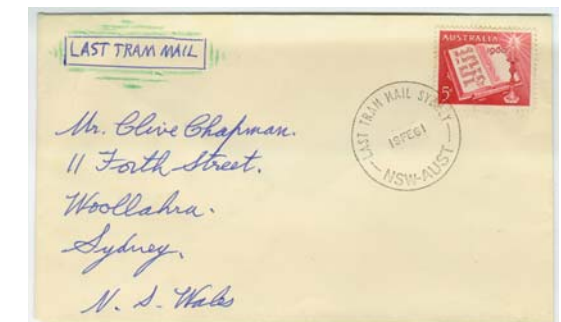 LAST TRAM MAIL
AUSTRALIA
1960
5D
LAST TRAM MAIL SYDNEY
19FE61
NSW-AUST
Mr. Clive Chapman.
11 Forth Street.
Woollahra.
Sydney.
N. S. Wales